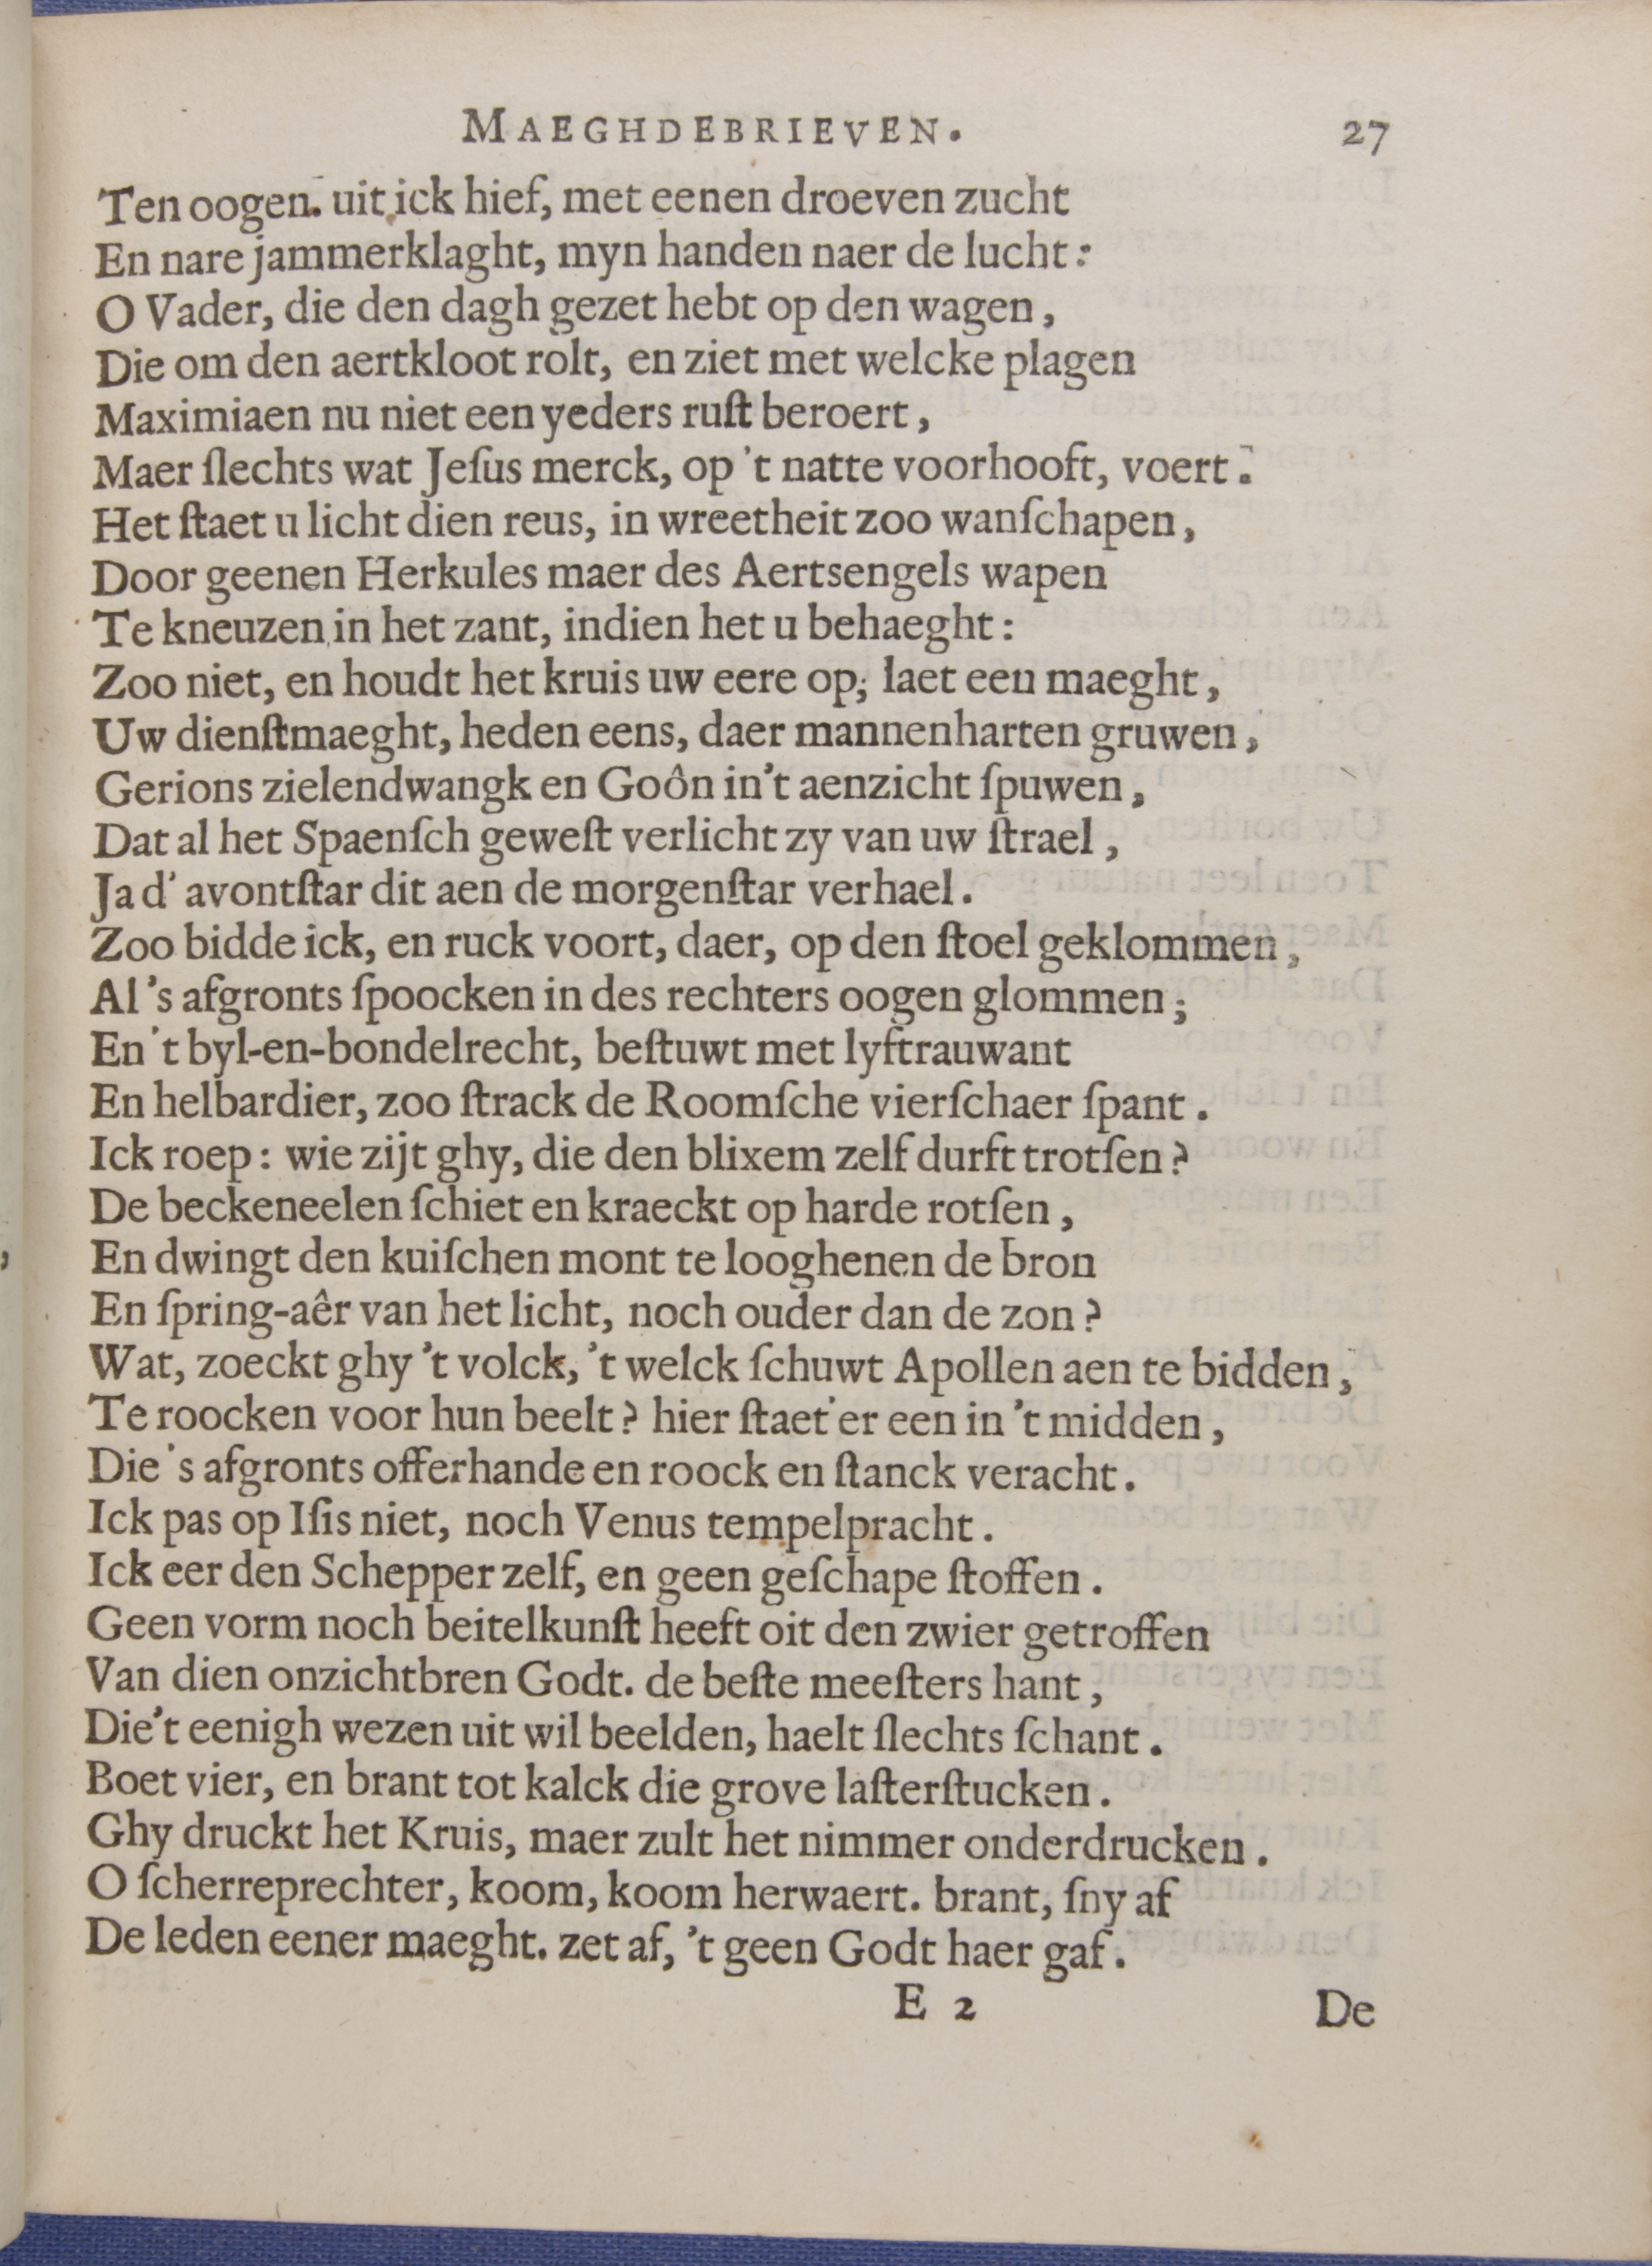 MAEGHDEBRIEVEN. 27
Ten oogen. uit ick hief, met eenen droeven zucht
En nare jammerklaght, myn handen naer de lucht:
O Vader, die den dagh gezet hebt op den wagen,
Die om den aertkloot rolt, en ziet met welcke plagen
Maximiaen nu niet een yeders ruſt beroert,
Maer ſlechts wat Jeſus merck, op 't natte voorhooft, voert.
Het ſtaet u licht dien reus, in wreetheit zoo wanſchapen,
Door geenen Herkules maer des Aertsengels wapen
Te kneuzen in het zant, indien het u behaeght:
Zoo niet, en houdt het kruis uw eere op; laet een maeght,
Uw dienſtmaeght, heden eens, daer mannenharten gruwen,
Gerions zielendwangk en Goôn in't aenzicht ſpuwen,
Dat al het Spaenſch geweſt verlicht zy van uw ſtrael,
Ja d' avontſtar dit aen de morgenſtar verhael.
Zoo bidde ick, en ruck voort, daer, op den ſtoel geklommen,
Al 's afgronts ſpoocken in des rechters oogen glommen;
En 't byl-en-bondelrecht, beſtuwt met lyftrauwant
En helbardier, zoo ſtrack de Roomſche vierſchaer ſpant.
Ick roep: wie zijt ghy, die den blixem zelf durft trotſen?
De beckeneelen ſchiet en kraeckt op harde rotſen,
En dwingt den kuiſchen mont te looghenen de bron
En ſpring-aêr van het licht, noch ouder dan de zon?
Wat, zoeckt ghy 't volck, 't welck ſchuwt Apollen aen te bidden,
Te roocken voor hun beelt? hier ſtaet'er een in 't midden,
Die 's afgronts offerhande en roock en ſtanck veracht.
Ick pas op Iſis niet, noch Venus tempelpracht.
Ick eer den Schepper zelf, en geen geſchape ſtoffen.
Geen vorm noch beitelkunſt heeft oit den zwier getroffen
Van dien onzichtbren Godt. de beſte meeſters hant,
Die't eenigh wezen uit wil beelden, haelt ſlechts ſchant.
Boet vier, en brant tot kalck die grove laſterſtucken.
Ghy druckt het Kruis, maer zult het nimmer onderdrucken.
O ſcherreprechter, koom, koom herwaert. brant, ſny af
De leden eener maeght. zet af, 't geen Godt haer gaf.
E 2 De